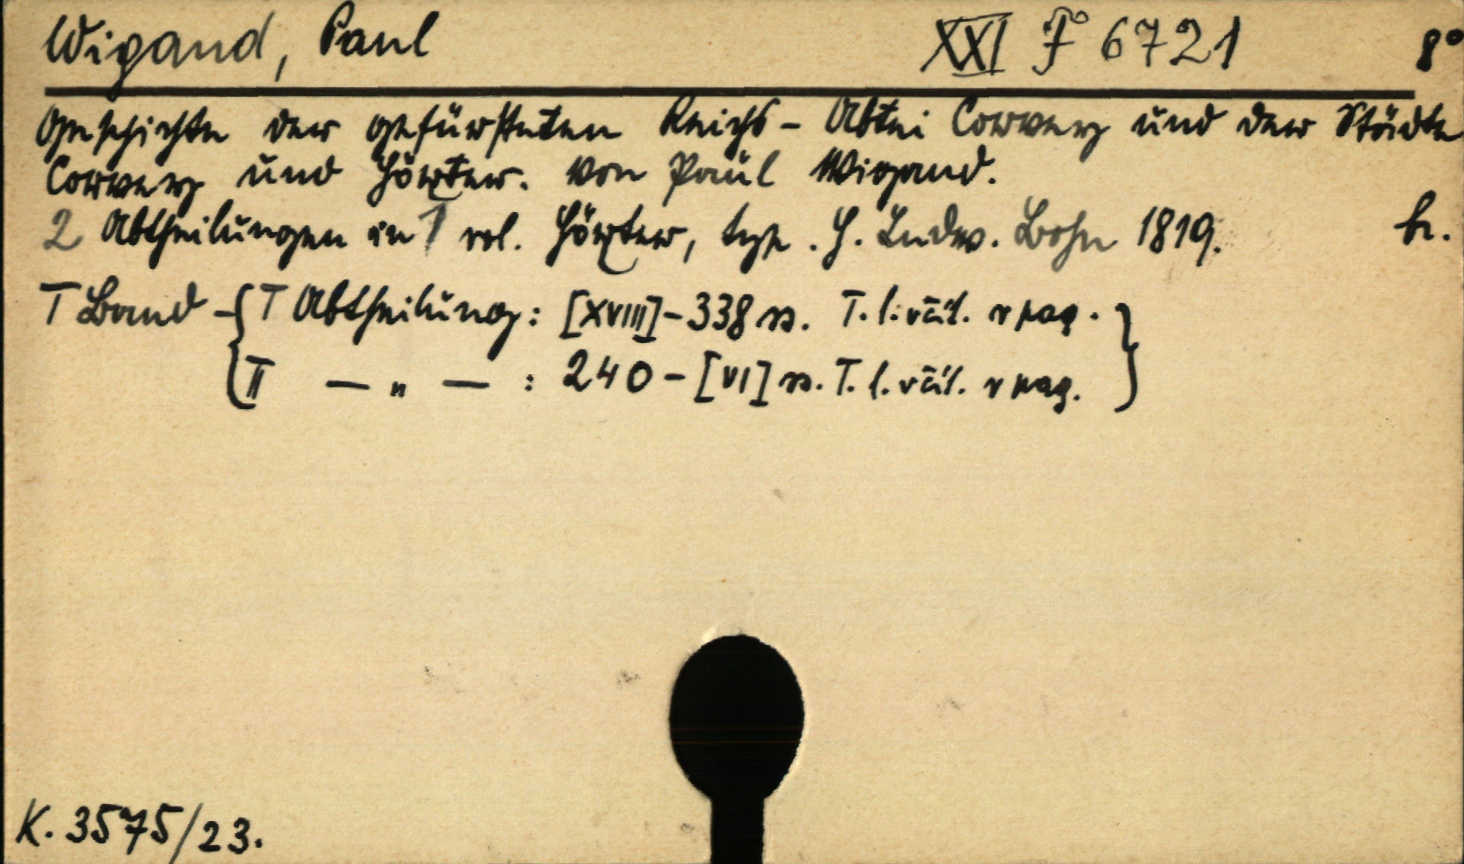 Wigand, Paul XXI F° 6721 8°
Geschichte der gefürsteten Reichs-Abtei Corvey und der Städte
Corvey und Höxter. Von Paul Wigand.
2 Abtheilungen in 1 vol. Höxter, typ. H. Ludw. Bohn 1819. h.
I Band - { I Abtheilung: [XVIII]-338 ss. T. l. včít. v pag. }
II — „ — : 240-[VI] ss. T. l. včít. v pag.
K. 3575/23.